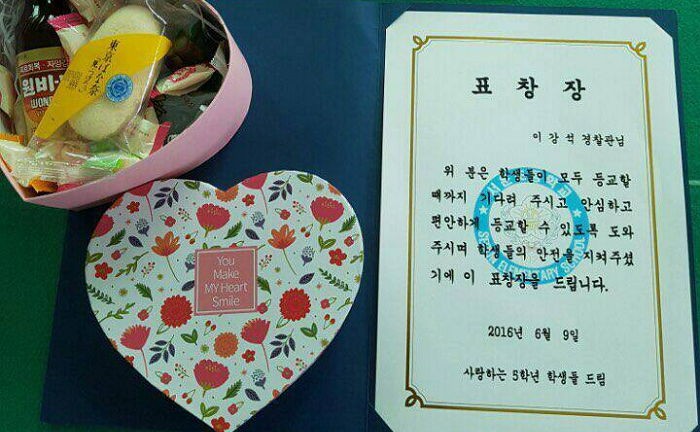 원비
東京ばな奈
You
Make
MY Heart
Smile
표창장
이강석 경찰관님
위 분은 학생들이 모두 등교할
때까지 기다려 주시고 안심하고
편안하게 등교할 수 있도록 도와
주시며 학생들의 안전을 지켜주셨
기에 이 표창장을 드립니다.
2016년 6월 9일
사랑하는 5학년 학생들 드림